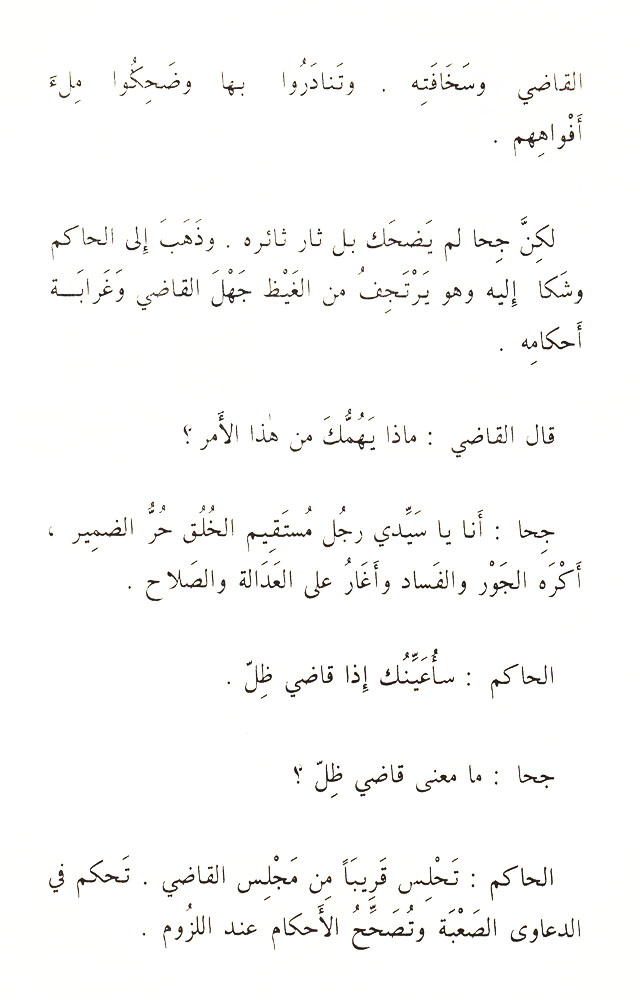 القاضي وسَخَافَتِه . وتَنادَرُوا بها وضَحِكُوا مِلءَ
أَفْواهِهم .
لكِنَّ جِحا لم يَضحَك بل ثار ثائره . وذَهَبَ إلى الحاكم
وشَكا إِليه وهو يَرْتَجِفُ من الغَيْظ جَهْلَ القاضي وَغَرابَـــة
أَحكامِه .
قال القاضي : ماذا يَهُمُّكَ من هٰذا الأَمر ؟
جِحا : أَنا يا سَيِّدي رجُل مُستَقِيم الخُلُق حُرُّ الضمِير ،
أَكْرَه الجَوْر والفَساد وأَغَارُ على العَدَالة والصَلاح .
الحاكم : سأُعَيِّنُك إِذا قاضي ظِلّ .
جحا : ما معنى قاضي ظِلّ ؟
الحاكم : تَحْلِس قَرِيبَاً مِن مَجْلِس القاضي . تَحكم في
الدعاوى الصَعْبَة وتُصَحِّحُ الأَحكام عند اللزُوم .